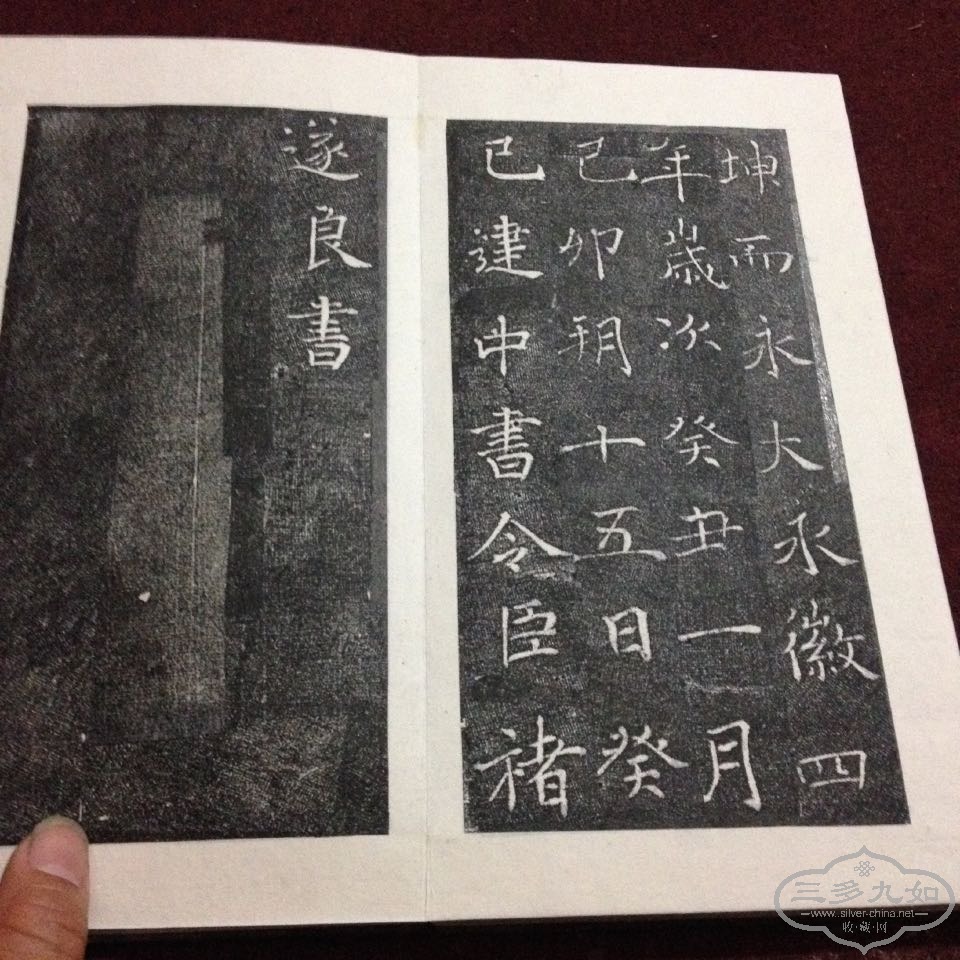 坤而永大永徽四
年歲次癸丑一月
己卯玥十五日癸
已建中書令臣褚
遂良書
三多九如
www.silver-china.net
收·藏·网